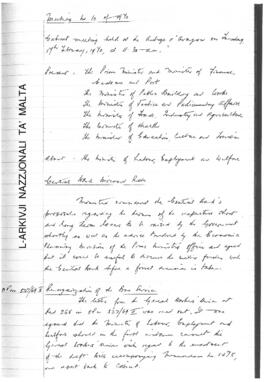 Meeting No 10 of 1970
Cabinet meeting held at the Auberge d'Aragon on Tuesday
17th February, 1970, at 11.30 a.m.
Present - The Prime Minister and Minister of Finance,
Customs and Port
The Minister of Public Building and Works
The Minister of Justice and Parliamentary Affairs
The Minister of Trade, Industry and Agriculture
The Minister of Health
The Minister of Education, Culture and Tourism
About - The Minister of Labour, Employment and Welfare
Central Bank
Ministers considered the Central Bank's
proposals regarding the
to be issued by the Government
shortly as well as the advice
Planning Division of the Prime Minister's Office and agreed
that it would be useful to discuss the matter further with
the Central Bank before a final decision is taken.
OPM 557/69 II Reorganization of the Bus Service
The letter from the General Workers Union at
red 266 in OPM 557/69 II was read out. It was
agreed that the Minister of Labour, Employment and
Welfare should in the first instance consult the
General Workers Union with regard to the
of the draft Bill accompanying Memorandum No 1075,
and report back to Cabinet.
L-ARKIVJI NAZZJONALI TA' MALTA